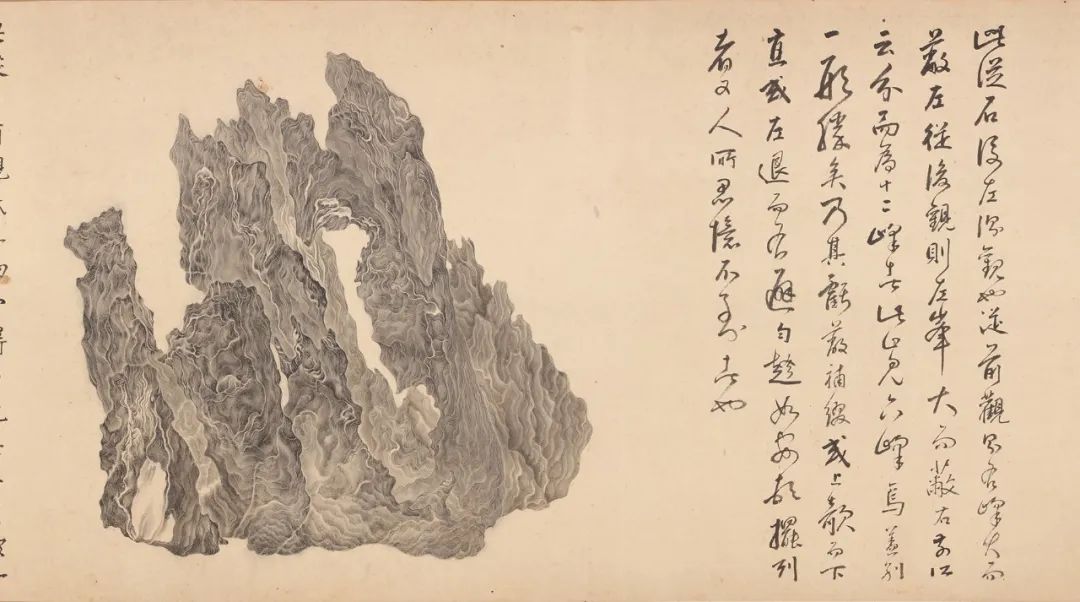 此從石後左觀也從前觀則右峰大而
蔽左從後觀則左峯大而蔽右
云分而為十二峰者此只見六峰焉蓋別
一形勝矣乃其虧蔽補綴或上而下
直或左退而右避勻趨如擺列
者又人所思憶不到者也